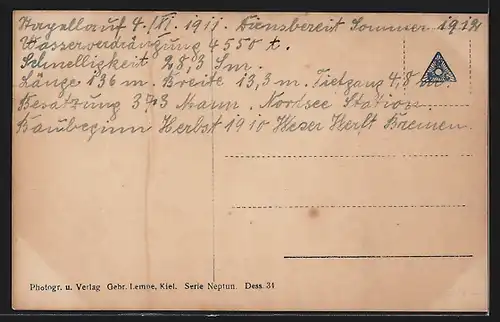 Stapellauf 4./XI. 1911. Dienstbereit Sommer 1912
Wasserverdrängung 4550 t.
Schnelligkeit 28,3 Sm.
Länge 136 m. Breite 13,3 m. Tiefgang 4,8 m.
Besatzung 373 Mann. Nordsee Station.
Baubeginn Herbst 1910 Weser Werft Bremen.
Photogr. u. Verlag Gebr. Lempe, Kiel. Serie Neptun. Dess. 31